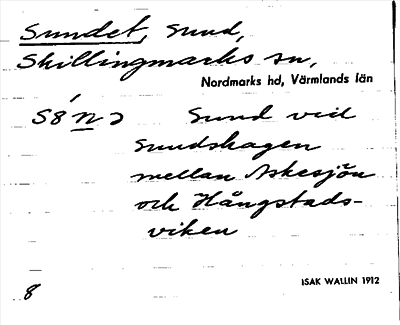 Sundet, Sund,
Skillingmarks sn,
Nordmarks hd, Värmlands län
Sund vid
Sundshagen
mellan Askesjön
och Hångstads-
viken
8
ISAK WALLIN 1912